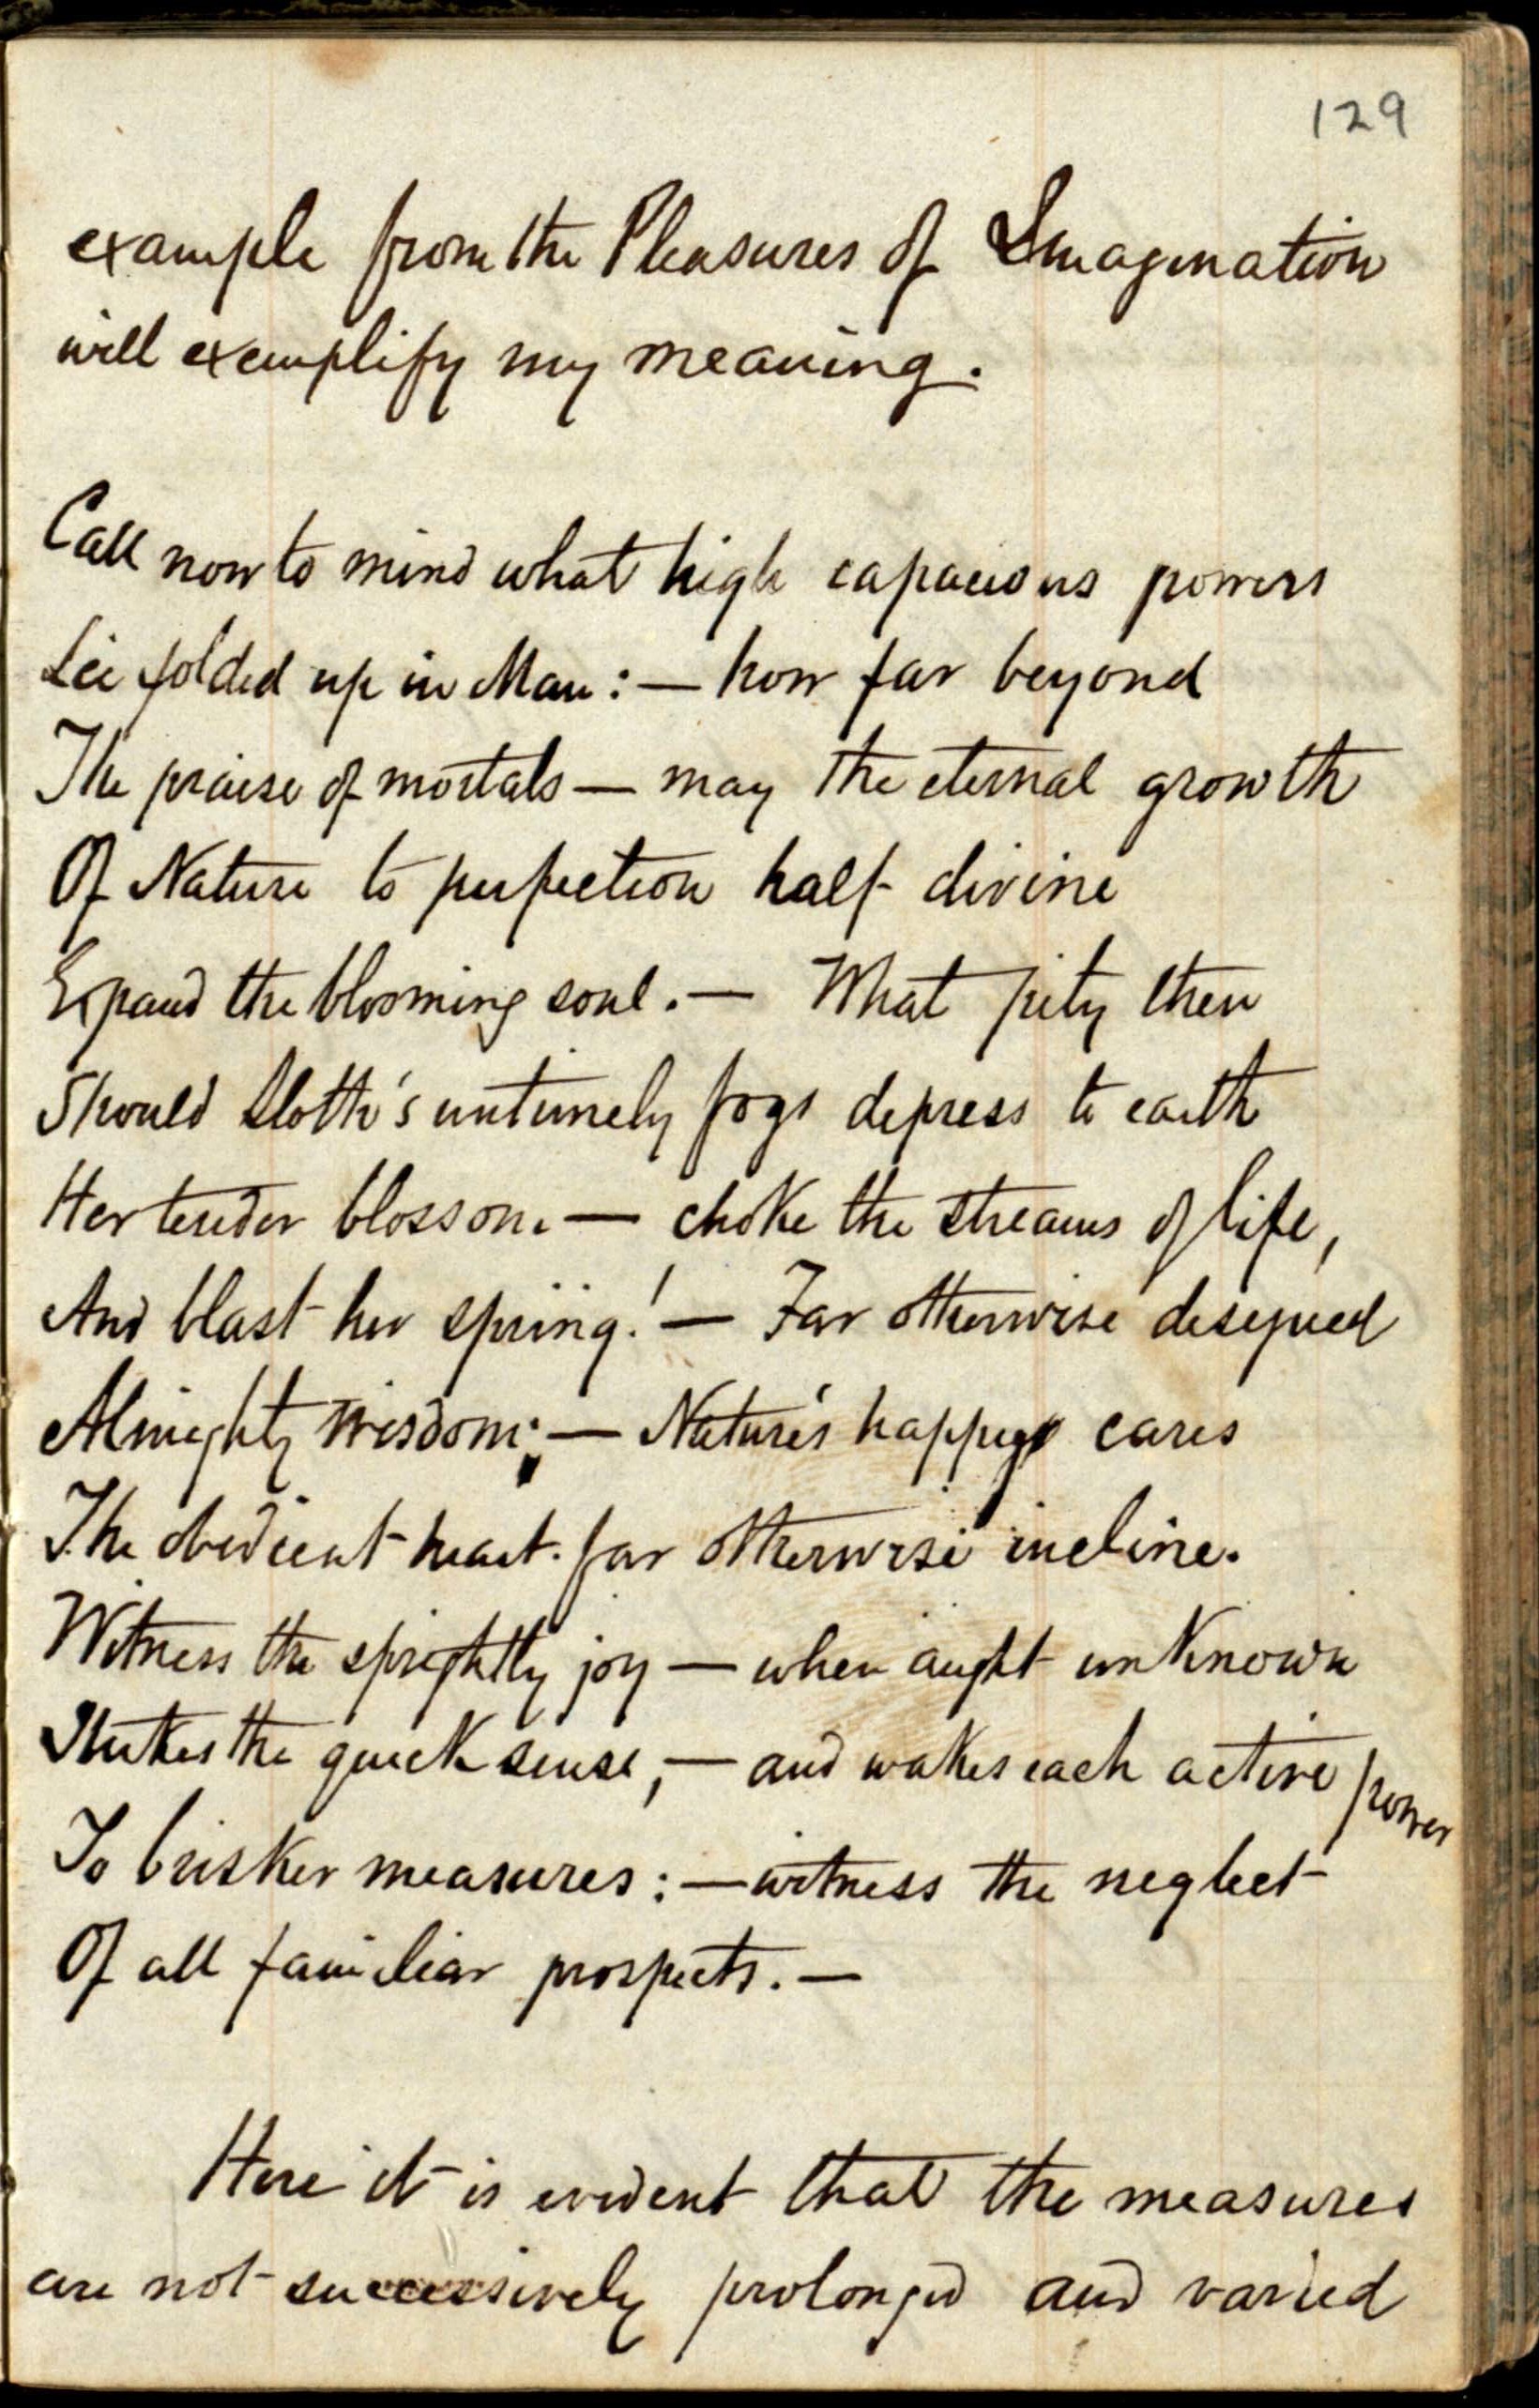 129
example from the Pleasures of Imagination
will exemplify my meaning.
Call now to mind what high capacious powers
Lie folded up in Man: — how far beyond
The praise of mortals — may the eternal growth
Of Nature to perfection half divine
Expand the blooming soul. — What pity then
Should Sloth's untimely fogs depress to earth
Her tender blossom — choke the streams of life,
And blast her spring! — Far otherwise designed
Almighty Wisdom; — Nature's happy cares
The obedient heart far otherwise incline.
Witness the sprightly joy — when aught unknown
Strikes the quick sense, — and wakes each active power
To brisker measures: — witness the neglect
Of all familiar prospects. —
Here it is evident that the measures
are not successively prolonged and varied